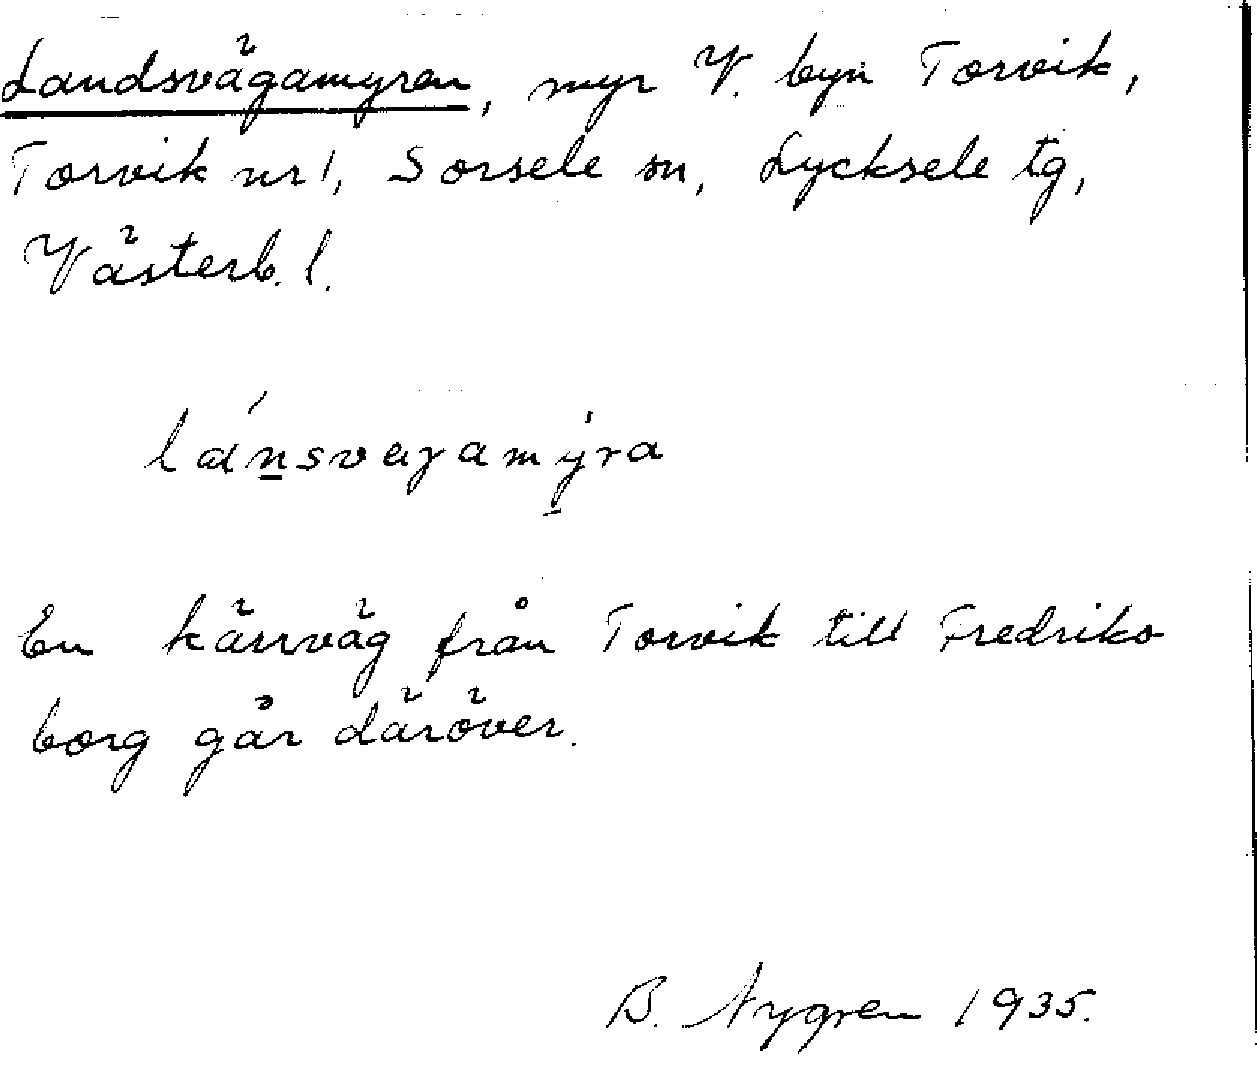 Landsvägamyren, myr V. byn Torvik,
Torvik nr 1, Sorsele sn, Lycksele tg,
Västerb. l.
lánsvægamýra
En kärrväg från Torvik till Fredriks-
borg går däröver.
B. Nygren 1935.